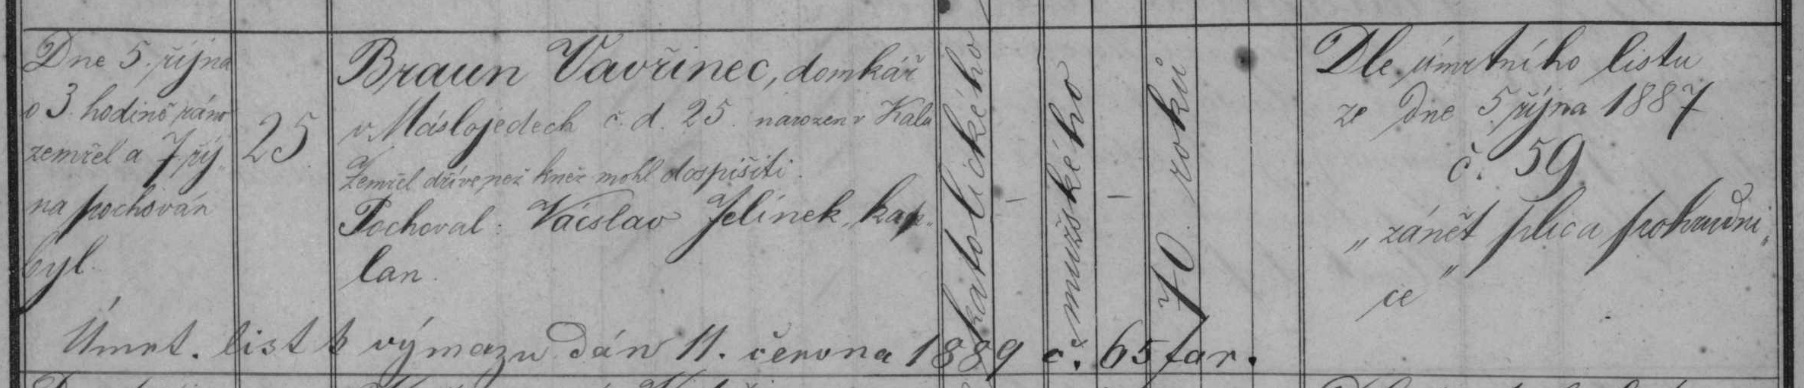 Dne 5. října
o 3. hodině ráno
zemřel a 7. říj
na pochován
byl.
25.
Braun Vavřinec, domkář
v Máslojedech č. d. 25. narozen v
Zemřel dříve než kněz mohl dospíšiti.
Pochoval: Vácslav Jelínek, kap-
lan.
katolického
–
mužského
–
70 roků
Dle úmrtního listu
ze dne 5. října 1887
č. 59
„zánět plic a pohrudni„
ce"
Úmrt. list k výmazu dán 11. června 1889 č. 65 far.